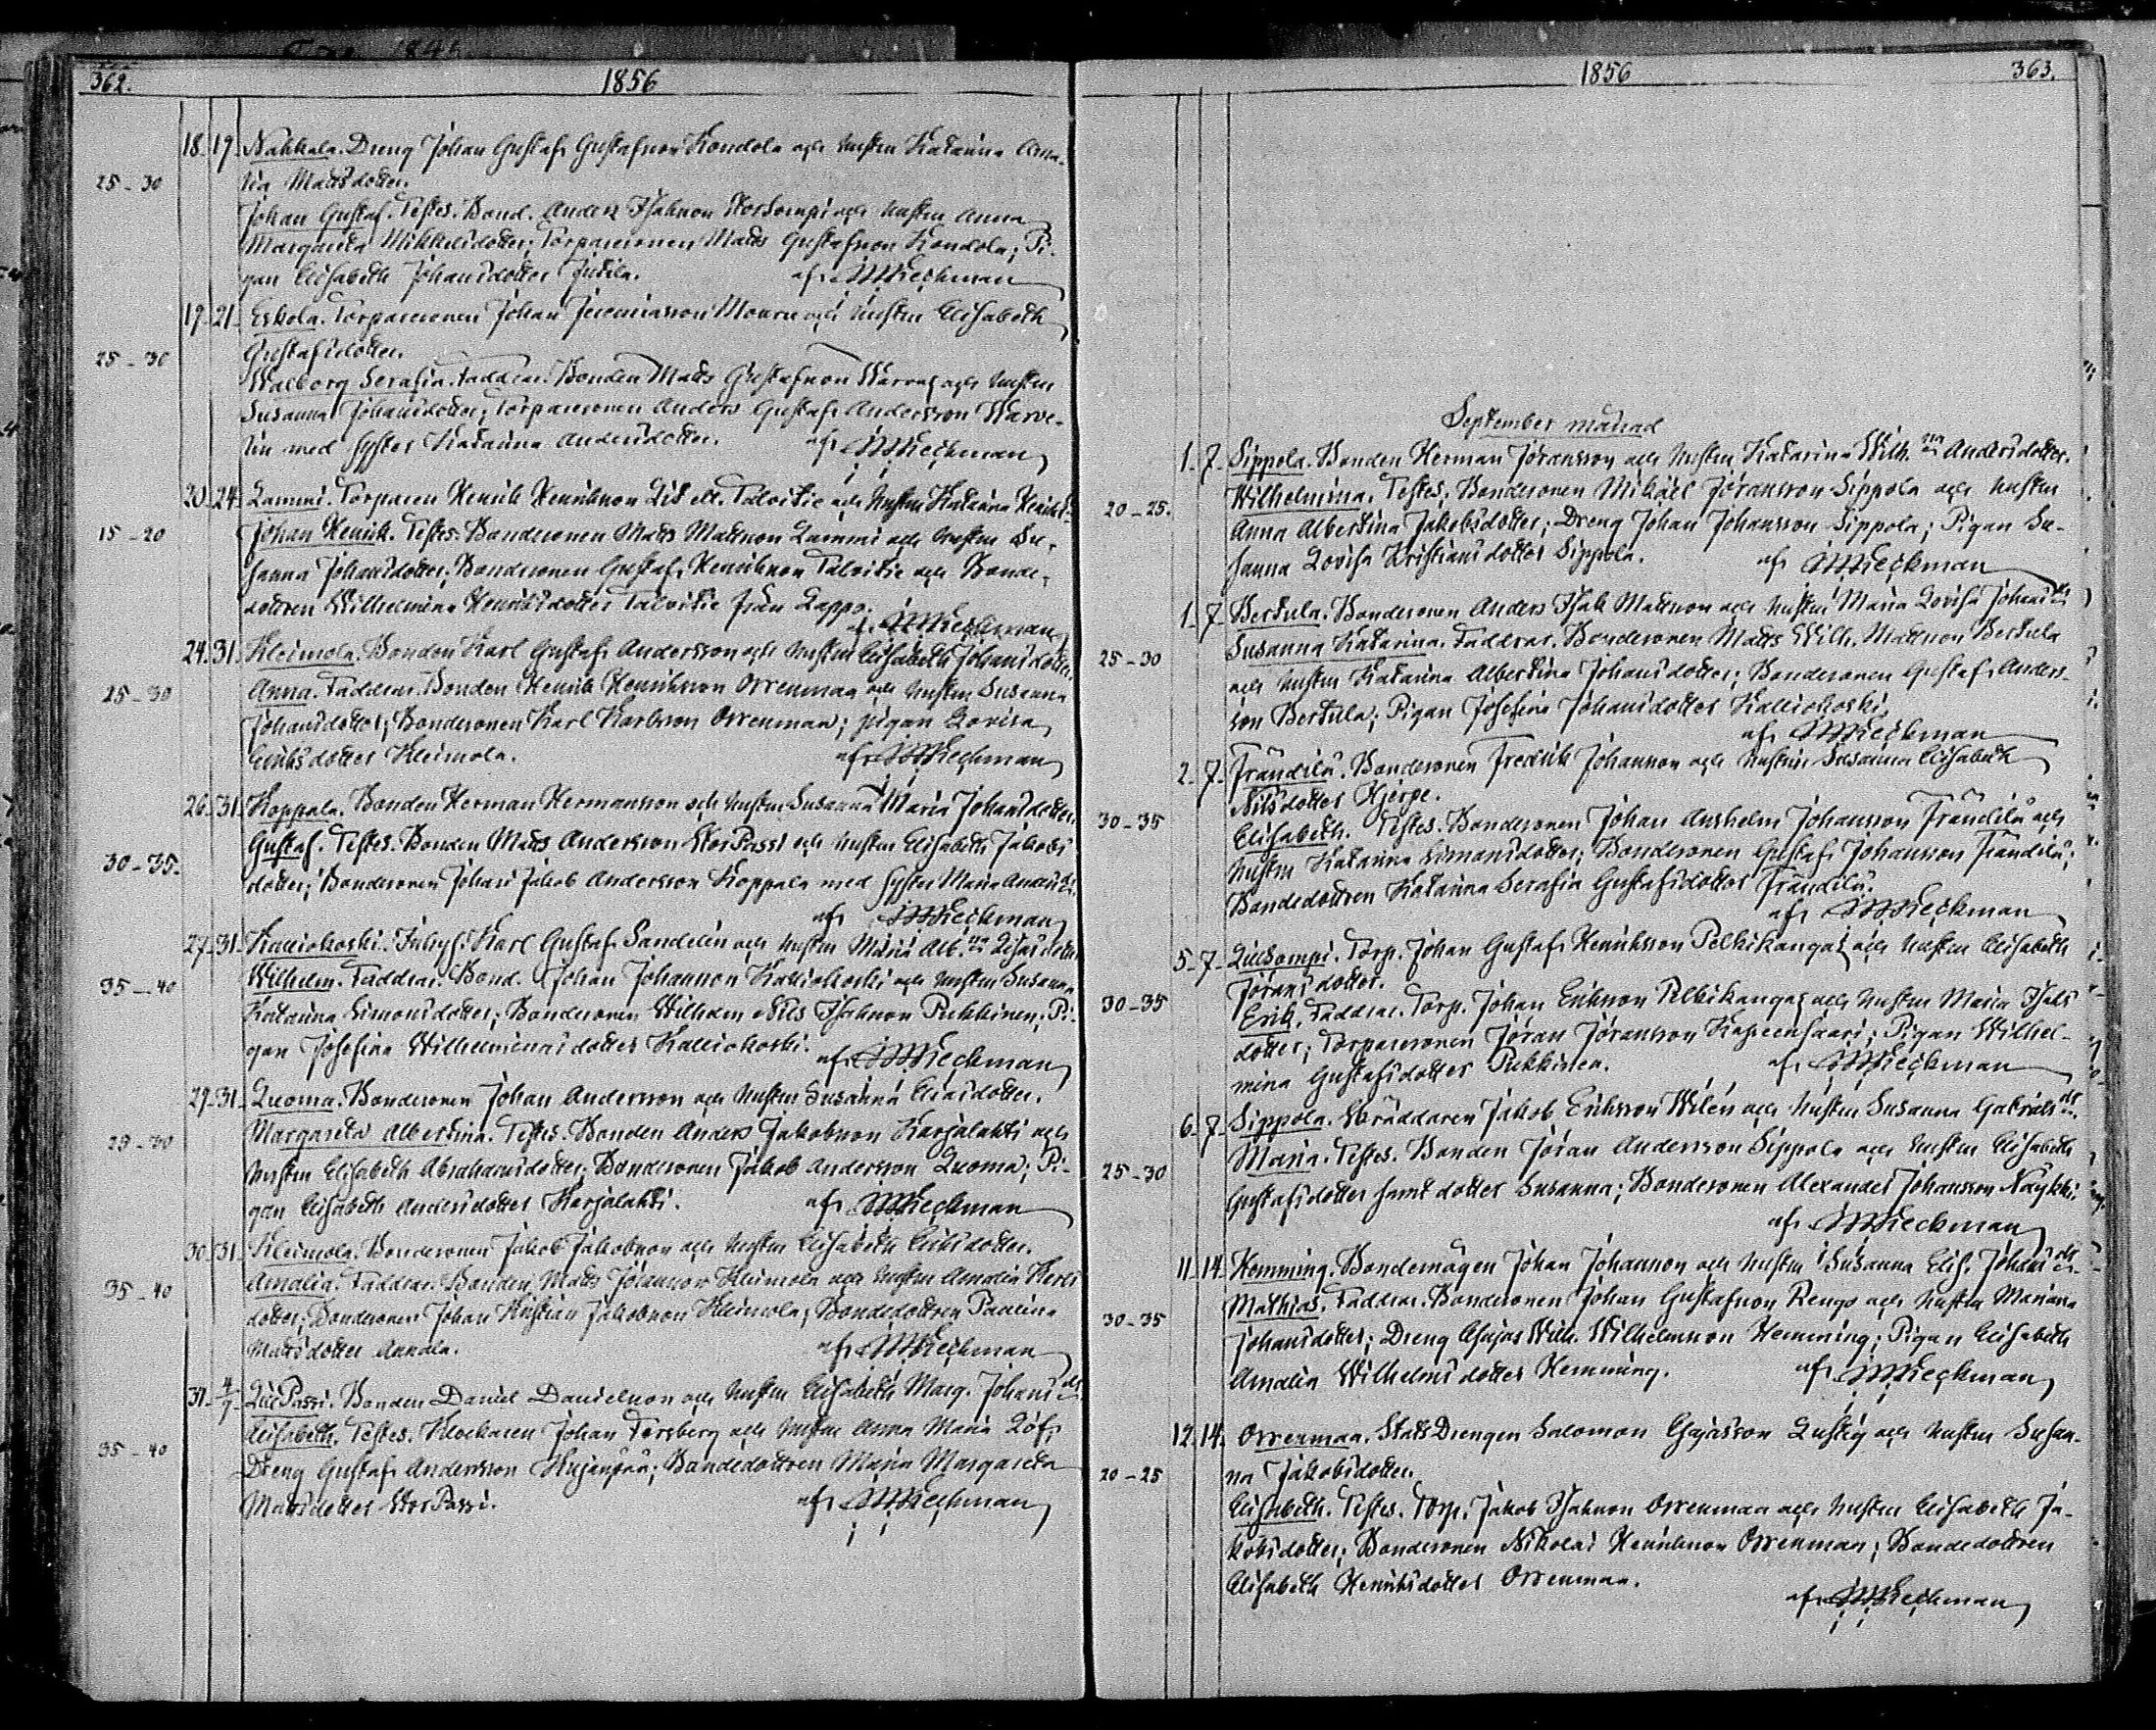 362.
1856
18. 19. Nahkala. Dreng Johan Gustaf Gustafsson Kondola och hustru Katarina Ama-
25-30
lia Mattsdotter.
Johan Gustaf. Testes. Bond. Anders Isaksson StorSompi och hustru Anna
Margareta Mikkelsdotter; Torparesonen Matts Gustafsson Kondola; Pi-
gan Elisabeth Johansdotter Jutila. af
19. 21. Eskola. Torparesonen Johan Jeremiasson och hustru Elisabeth
25-30
Gustafsdotter.
Walborg Serafia. Faddrar. Bonden Matts Gustafsson och hustru
Susanna Johansdotter; Torparesonen Anders Gustaf Andersson Warve-
lin med syster Katarina Andersdotter. af
20. 24. Lammi. Torparen Henrik Henriksson Talvitie och hustru Katarina
15-20
Johan Henrik. Testes. Bondesonen Matts Mattsson Lammi och hustru Su-
sanna Johansdotter; Bondesonen Gustaf Henriksson Talvitie och Bonde-
dottren Wilhelmina Henriksdotter Talvitie från Lappo.
24. 31. Kleimola. Bonden Karl Gustaf Andersson och hustru Elisabeth Johansdotter.
25-30
Anna. Faddrar. Bonden Henrik Henriksson Orrenmaa och hustru Susanna
Johansdotter; Bondesonen Karl Karlsson Orrenmaa; pigan Lovisa
Eriksdotter Kleimola. af
26. 31. Koppala. Bonden Herman Hermansson och hustru Susanna Maria Johansdotter.
30-35.
Gustaf. Testes. Bonden Matts Andersson StorPassi och hustru Elisabeth Jakobs
dotter; Bondesonen Johan Jakob Andersson Koppala med syster Maria
af
27. 31. Kalliokoski. Karl Gustaf Sandelin och hustru Maria
35-40
Wilhelm. Faddrar. Bond. Johan Johansson Kalliokoski och hustru Susanna
Katarina Simonsdotter; Bondesonen Wilhelm Nils Isaksson Pukkinen; Pi-
gan Josefina Wilhelminasdotter Kalliokoski. af
29. 31. Luoma. Bondesonen Johan Andersson och hustru Susanna Eliasdotter.
Margareta Albertina. Testes. Bonden Anders Jakobsson Karjalahti och
hustru Elisabeth Abrahamsdotter; Bondesonen Jakob Andersson Luoma; Pi-
gan Elisabeth Andersdotter Karjalahti. af
30. 31. Kleimola. Bondesonen Jakob Jakobsson och hustru Elisabeth Eriksdotter.
35-40
Amalia. Faddrar. Bonden Matts Kleimola och hustru Amalia Karls
dotter; Bondesonen Johan Kristian Jakobsson Kleimola; Bondedottren Paulina
Mattsdotter Annala. af
31. LillPassi. Bonden Daniel Danielsson och hustru Elisabeth Marg. Johans dr.
35-40
Elisabeth. Testes. Klockaren Johan Forsberg och hustru Anna Maria Löf;
Dreng Gustaf Andersson Hujanpää; Bondedottren Maria Margareta
Mattsdotter StorPassi. af
1856
363.
September månad
1. 7. Sippola. Bonden Herman Jöransson och hustru Katarina Wilh.na Andersdotter.
20-25.
Wilhelmina. Testes. Bondesonen Mikael Jöransson Sippola och hustru
Anna Albertina Jakobsdotter; Dreng Johan Johansson Sippola; Pigan Su-
sanna Lovisa Kristiansdotter Sippola. af
1. 7. Bertula. Bondesonen Anders Isak Mattsson och hustru Maria Lovisa Johans dr.
25-30
Susanna Katarina. Faddrar. Bondesonen Matts Wilh. Mattsson Bertula
och hustru Katarina Albertina Johansdotter; Bondesonen Gustaf Anders-
son Bertula; Pigan Josefina Johansdotter Kalliokoski.
af
2. 7. Frändilä. Bondesonen Fredrik Johansson och hustru Susanna Elisabeth
Nilsdotter Hjerpe.
30-35
Elisabeth. Testes. Bondesonen Johan Anshelm Johansson Frändilä och
hustru Katarina Simonsdotter; Bondesonen Gustaf Johansson Frändilä;
Bondedottren Katarina Serafia Gustafsdotter Frändilä.
af
5. 7. LillSompi. Torp. Johan Gustaf Henriksson Pelkikangas och hustru Elisabeth
Jöransdotter.
30-35
Erik. Faddrar. Torp. Johan Eriksson Pelkikangas och hustru Maria Isaks
dotter; Torparesonen Jöran Jöransson; Pigan Wilhel-
mina Gustafsdotter Pukkinen. af
6. 7. Sippola. Skräddaren Jakob Eriksson Wilén och hustru Susanna Gabriels dr.
25-30
Maria. Testes. Bonden Jöran Andersson Sippola och hustru Elisabeth
Gustafsdotter samt dotter Susanna; Bondesonen Alexander Johansson Näykki
af
11. 14. Hemming. Bondemågen Johan Johansson och hustru Susanna Elis. Johans dr.
30-35
Mathias. Faddrar. Bondesonen Johan Gustafsson Rengo och hustru Mariana
Johansdotter; Dreng Esajas Wilh. Wilhelmsson Hemming; Pigan Elisabeth
Amalia Wilhelmsdotter Hemming. af
12. 14. Orrenmaa. StatsDrengen Salomon Esajasson Lustig och hustru Susan-
20-25
na Jakobsdotter.
Elisabeth. Testes. Torp. Jakob Isaksson Orrenmaa och hustru Elisabeth Ja-
kobsdotter; Bondesonen Nikolai Henriksson Orrenmaa; Bondedottren
Elisabeth Henriksdotter Orrenmaa.
af